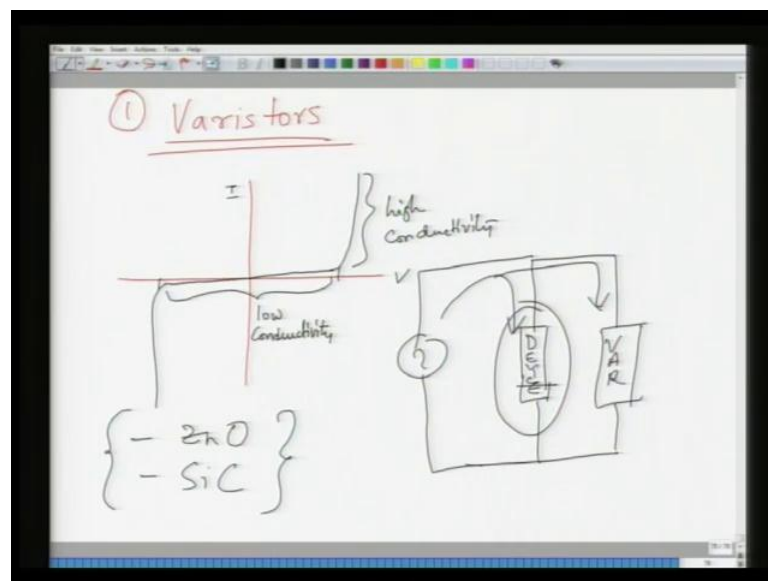 File Edit View Insert Actions Tools Help
① Varistors
I
high
Conductivity
V
low
Conductivity
VAR
- ZnO
- SiC